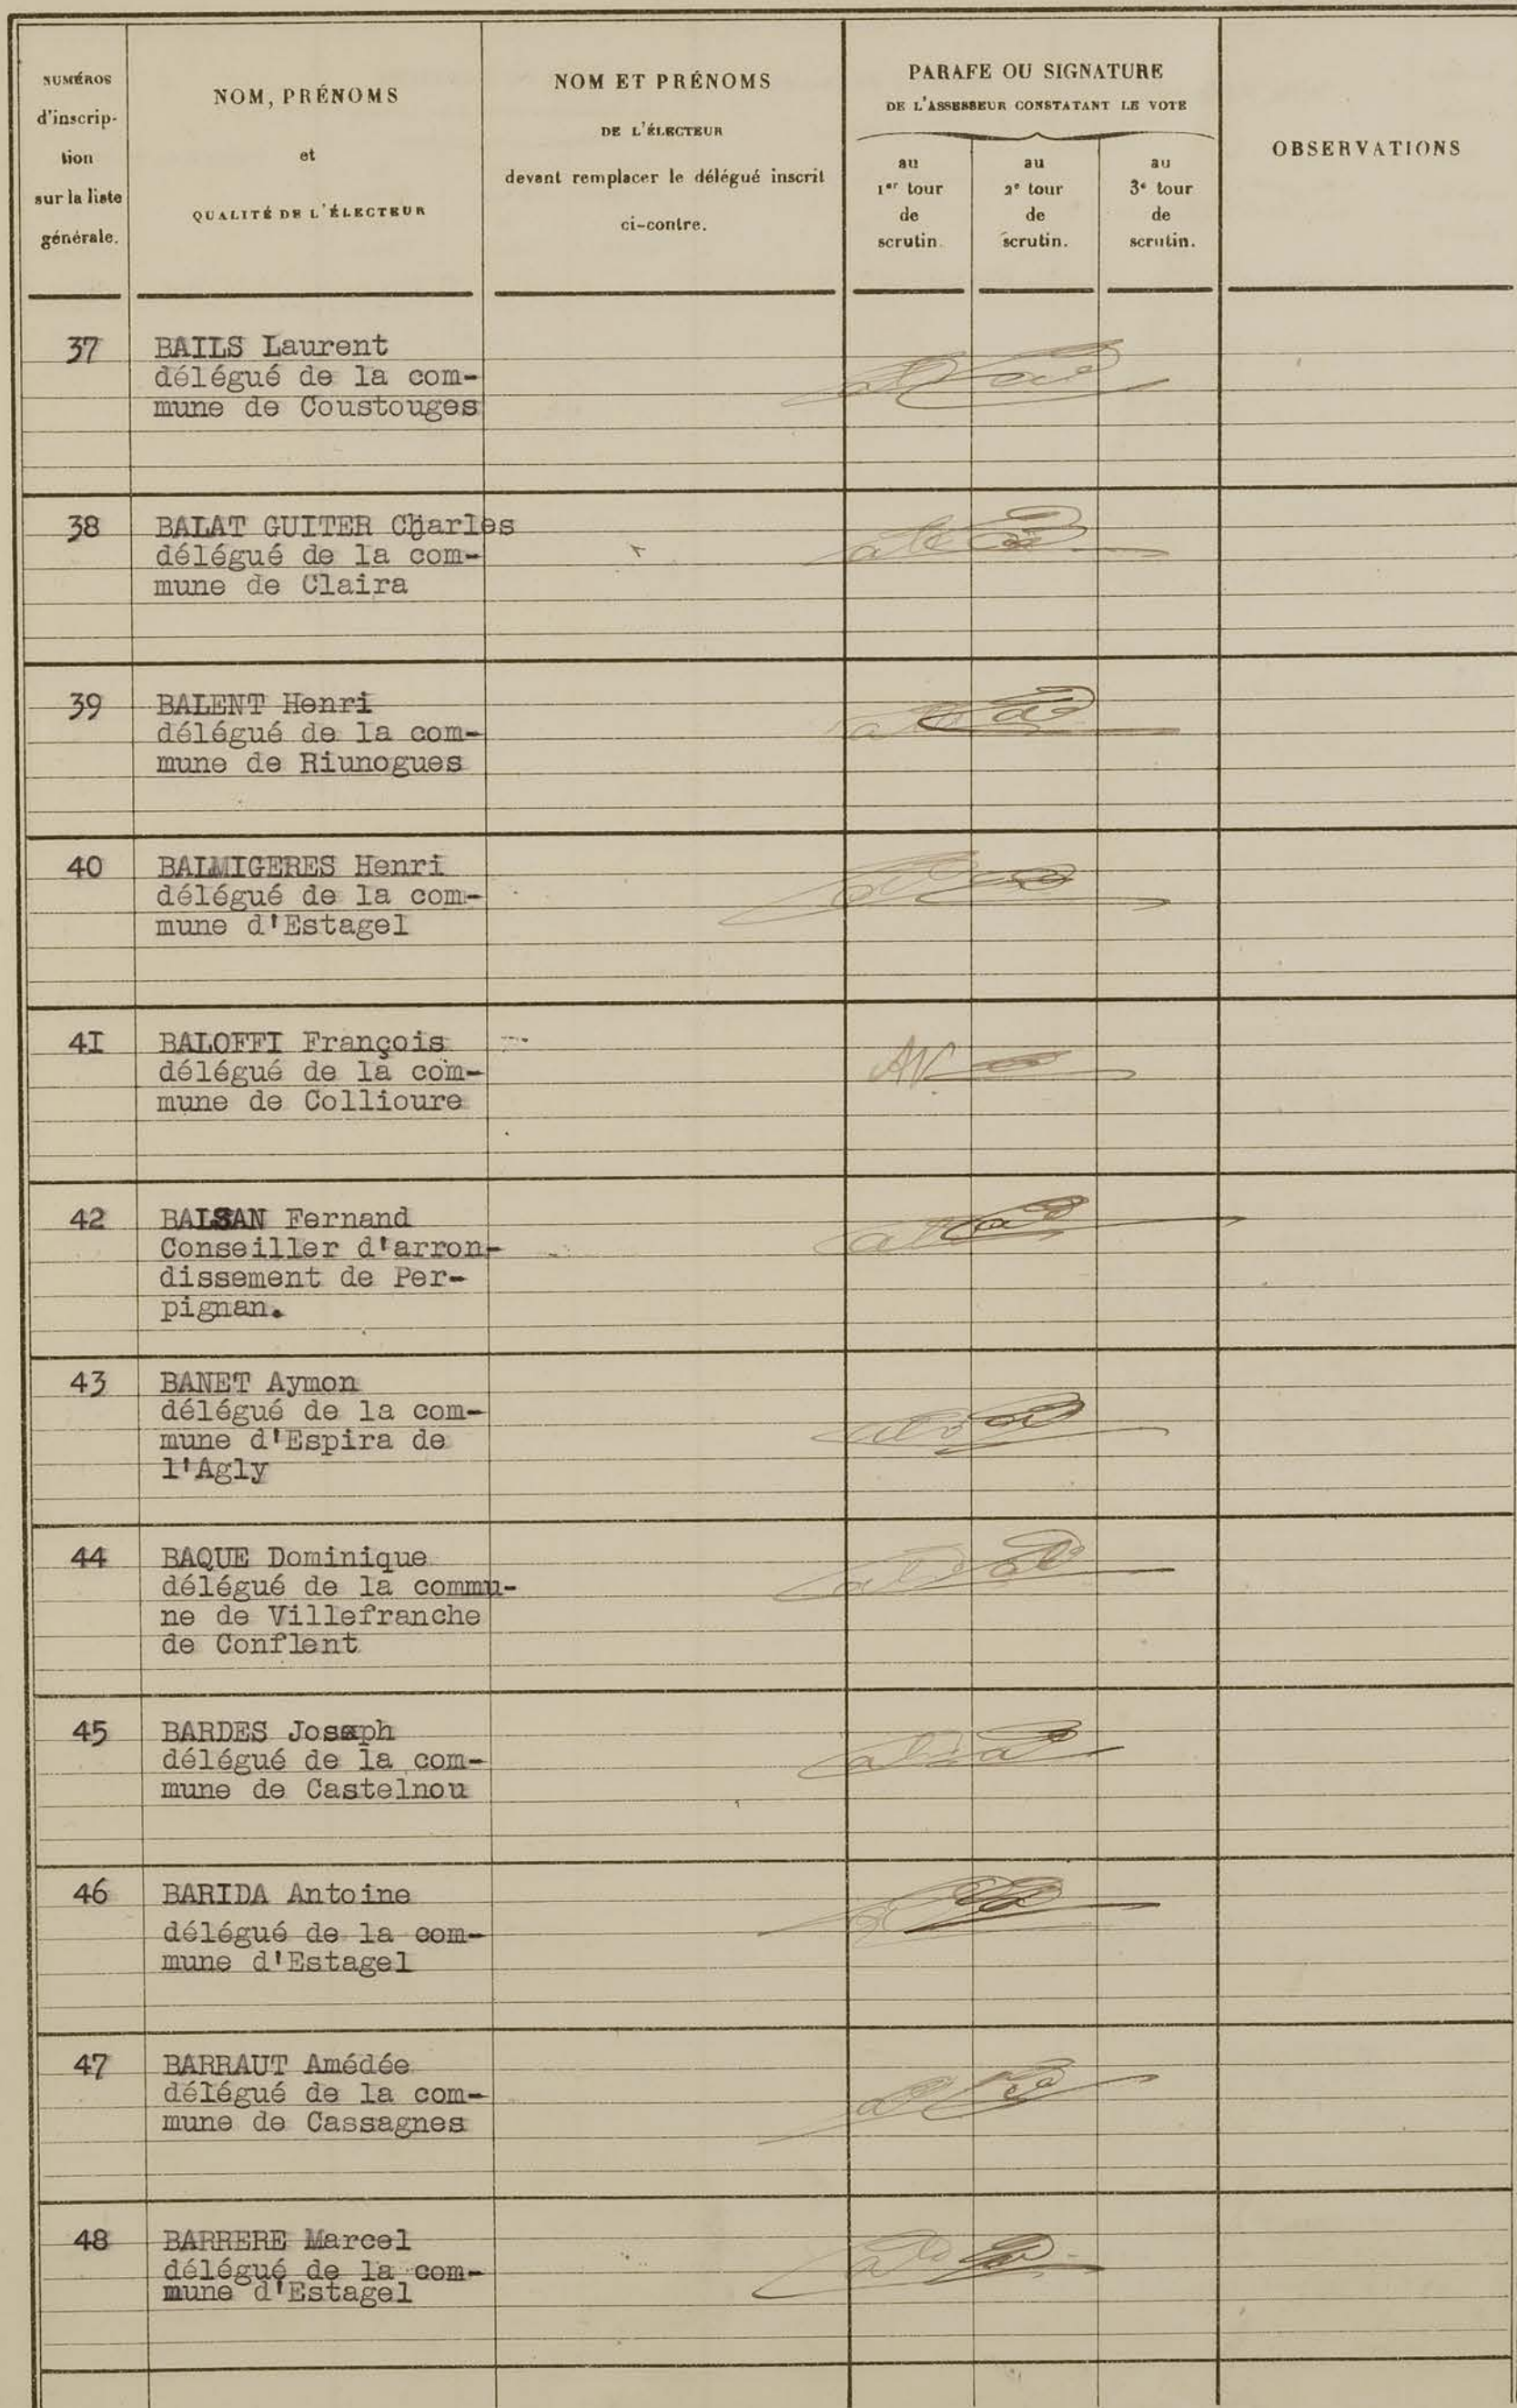 NUMÉROS
d'inscrip-
tion
sur la liste
générale.
NOM, PRÉNOMS
et
QUALITÉ DE L'ÉLECTEUR
NOM ET PRÉNOMS
DE L'ÉLECTEUR
devant remplacer le délégué inscrit
ci-contre.
PARAFE OU SIGNATURE
DE L'ASSESSEUR CONSTATANT LE VOTE
au
1er tour
de
scrutin.
au
2e tour
de
scrutin.
au
3e tour
de
scrutin.
OBSERVATIONS
37 BAILS Laurent
délégué de la com-
mune de Coustouges
38 BALAT GUITER Charles
délégué de la com-
mune de Claira
39 BALENT Henri
délégué de la com-
mune de Riunogues
40 BALMIGERES Henri
délégué de la com-
mune d'Estagel
4I BALOFFI François
délégué de la com-
mune de Collioure
42 BALSAN Fernand
Conseiller d'arron-
dissement de Per-
pignan.
43 BANET Aymon
délégué de la com-
mune d'Espira de
l'Agly
44 BAQUE Dominique
délégué de la commu-
ne de Villefranche
de Conflent
45 BARDES Joseph
délégué de la com-
mune de Castelnou
46 BARIDA Antoine
délégué de la com-
mune d'Estagel
47 BARRAUT Amédée
délégué de la com-
mune de Cassagnes
48 BARRERE Marcel
délégué de la com-
mune d'Estagel